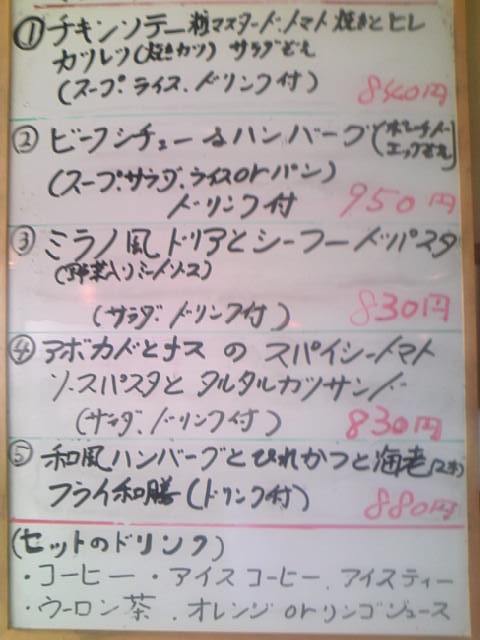 ① チキンソテー粒マスタード・トマト焼きとヒレ
カツレツ(焼きカツ) サラダどえ
(スープ、ライス、ドリンク付) 840円
② ビーフシチュー&ハンバーグ(ポーチドエッグどえ)
(スープ、サラダ、ライスorパン)
ドリンク付 950円
③ ミラノ風ドリアとシーフードパスタ
(野菜入りミートソース)
(サラダ、ドリンク付) 830円
④ アボカドとナスのスパイシートマト
ソースパスタとタルタルカツサンド
(サラダ、ドリンク付) 830円
⑤ 和風ハンバーグとひれかつと海老(2本)
フライ和膳(ドリンク付) 880円
(セットのドリンク)
・コーヒー・アイスコーヒー、アイスティー
・ウーロン茶、オレンジorリンゴジュース